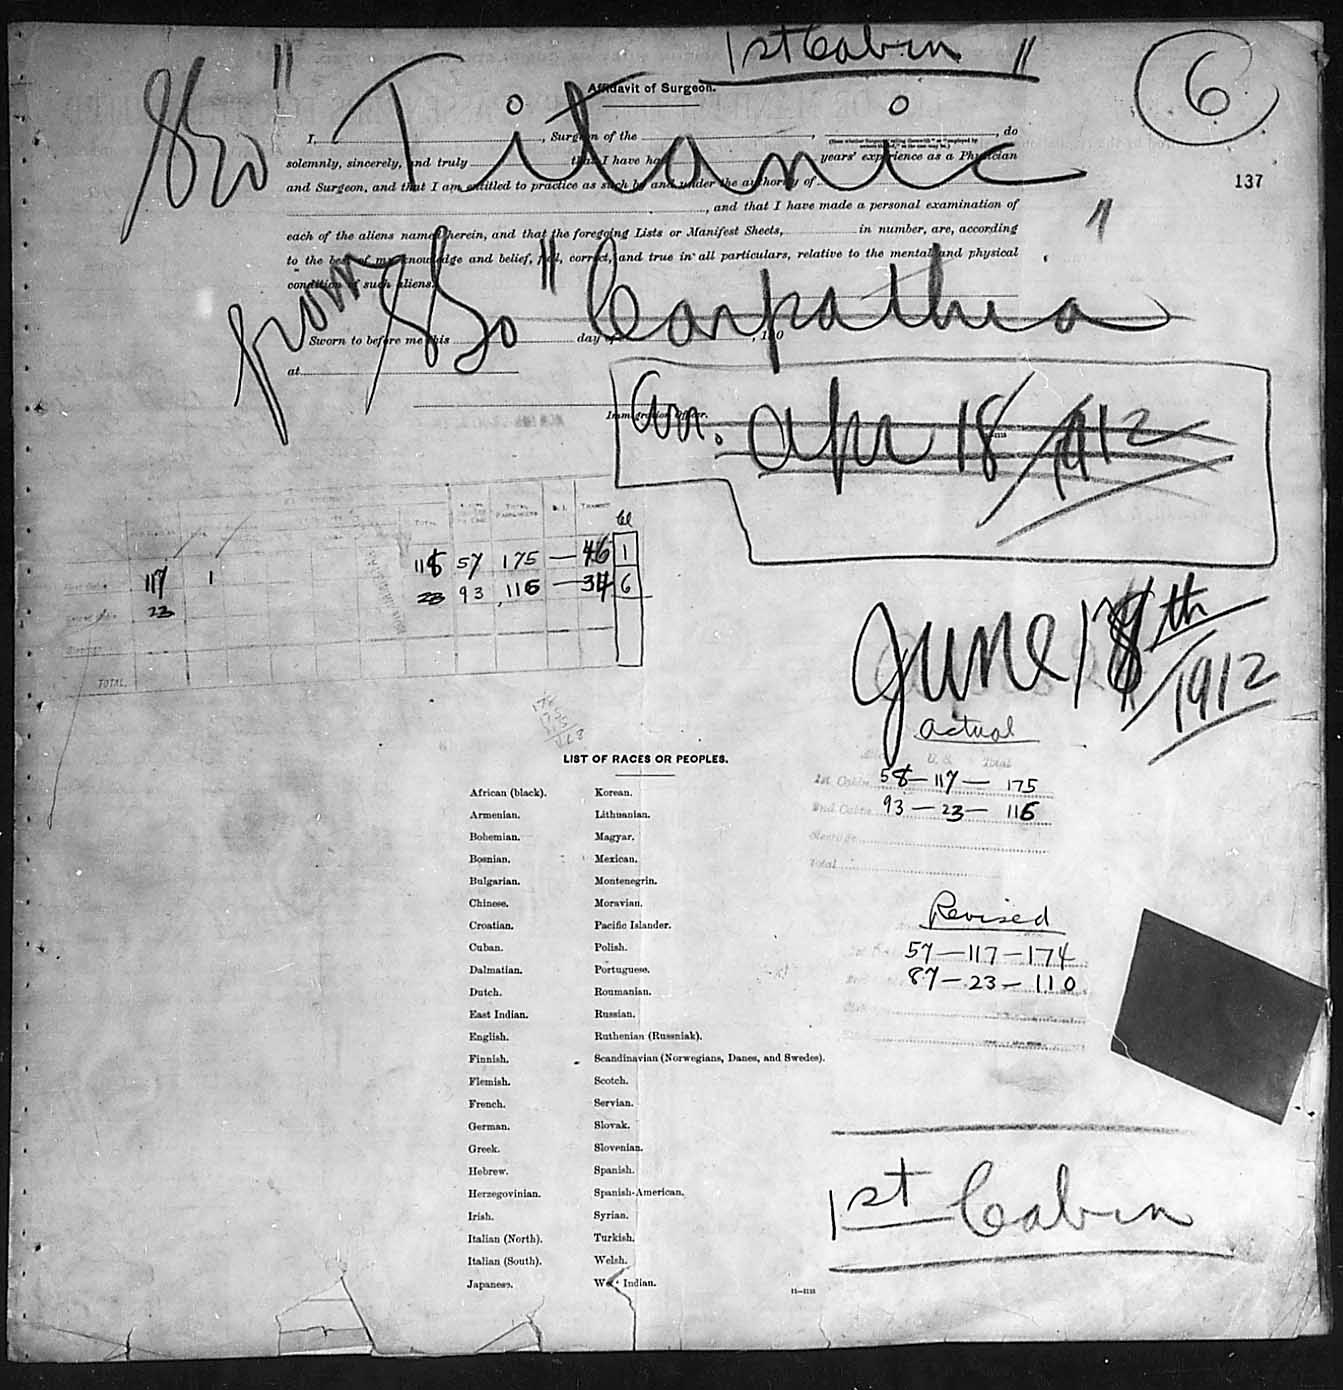 1st Cabin "
6
S/S "
Titanic
Affidavit of Surgeon.
I, , Surgeon of the , , do
solemnly, sincerely, and truly that I have had years' experience as a Physician
and Surgeon, and that I am entitled to practice as such by and under the authority of
137
, and that I have made a personal examination of
each of the aliens named herein, and that the foregoing Lists or Manifest Sheets, in number, are, according
to the best of my knowledge and belief, full, correct, and true in all particulars, relative to the mental and physical
condition of such aliens.
from S/S " Carpathia "
Sworn to before me this day of , 190
at
Immigration Officer.
Arr. Apr 18/1912
TOTAL TOTAL PASSENGERS TRANSIT
117 1 118 57 175 — 46 1
23 23 93 116 — 34 6
TOTAL
June 18th/1912
Actual
U.S. Total
1st Cabin 58 — 117 — 175
2nd Cabin 93 — 23 — 116
Steerage
Total
LIST OF RACES OR PEOPLES.
African (black). Korean.
Armenian. Lithuanian.
Bohemian. Magyar.
Bosnian. Mexican.
Bulgarian. Montenegrin.
Chinese. Moravian.
Croatian. Pacific Islander.
Cuban. Polish.
Dalmatian. Portuguese.
Dutch. Roumanian.
East Indian. Russian.
English. Ruthenian (Russniak).
Finnish. Scandinavian (Norwegians, Danes, and Swedes).
Flemish. Scotch.
French. Servian.
German. Slovak.
Greek. Slovenian.
Hebrew. Spanish.
Herzegovinian. Spanish-American.
Irish. Syrian.
Italian (North). Turkish.
Italian (South). Welsh.
Japanese. West Indian.
Revised
57 — 117 — 174
87 — 23 — 110
1st Cabin